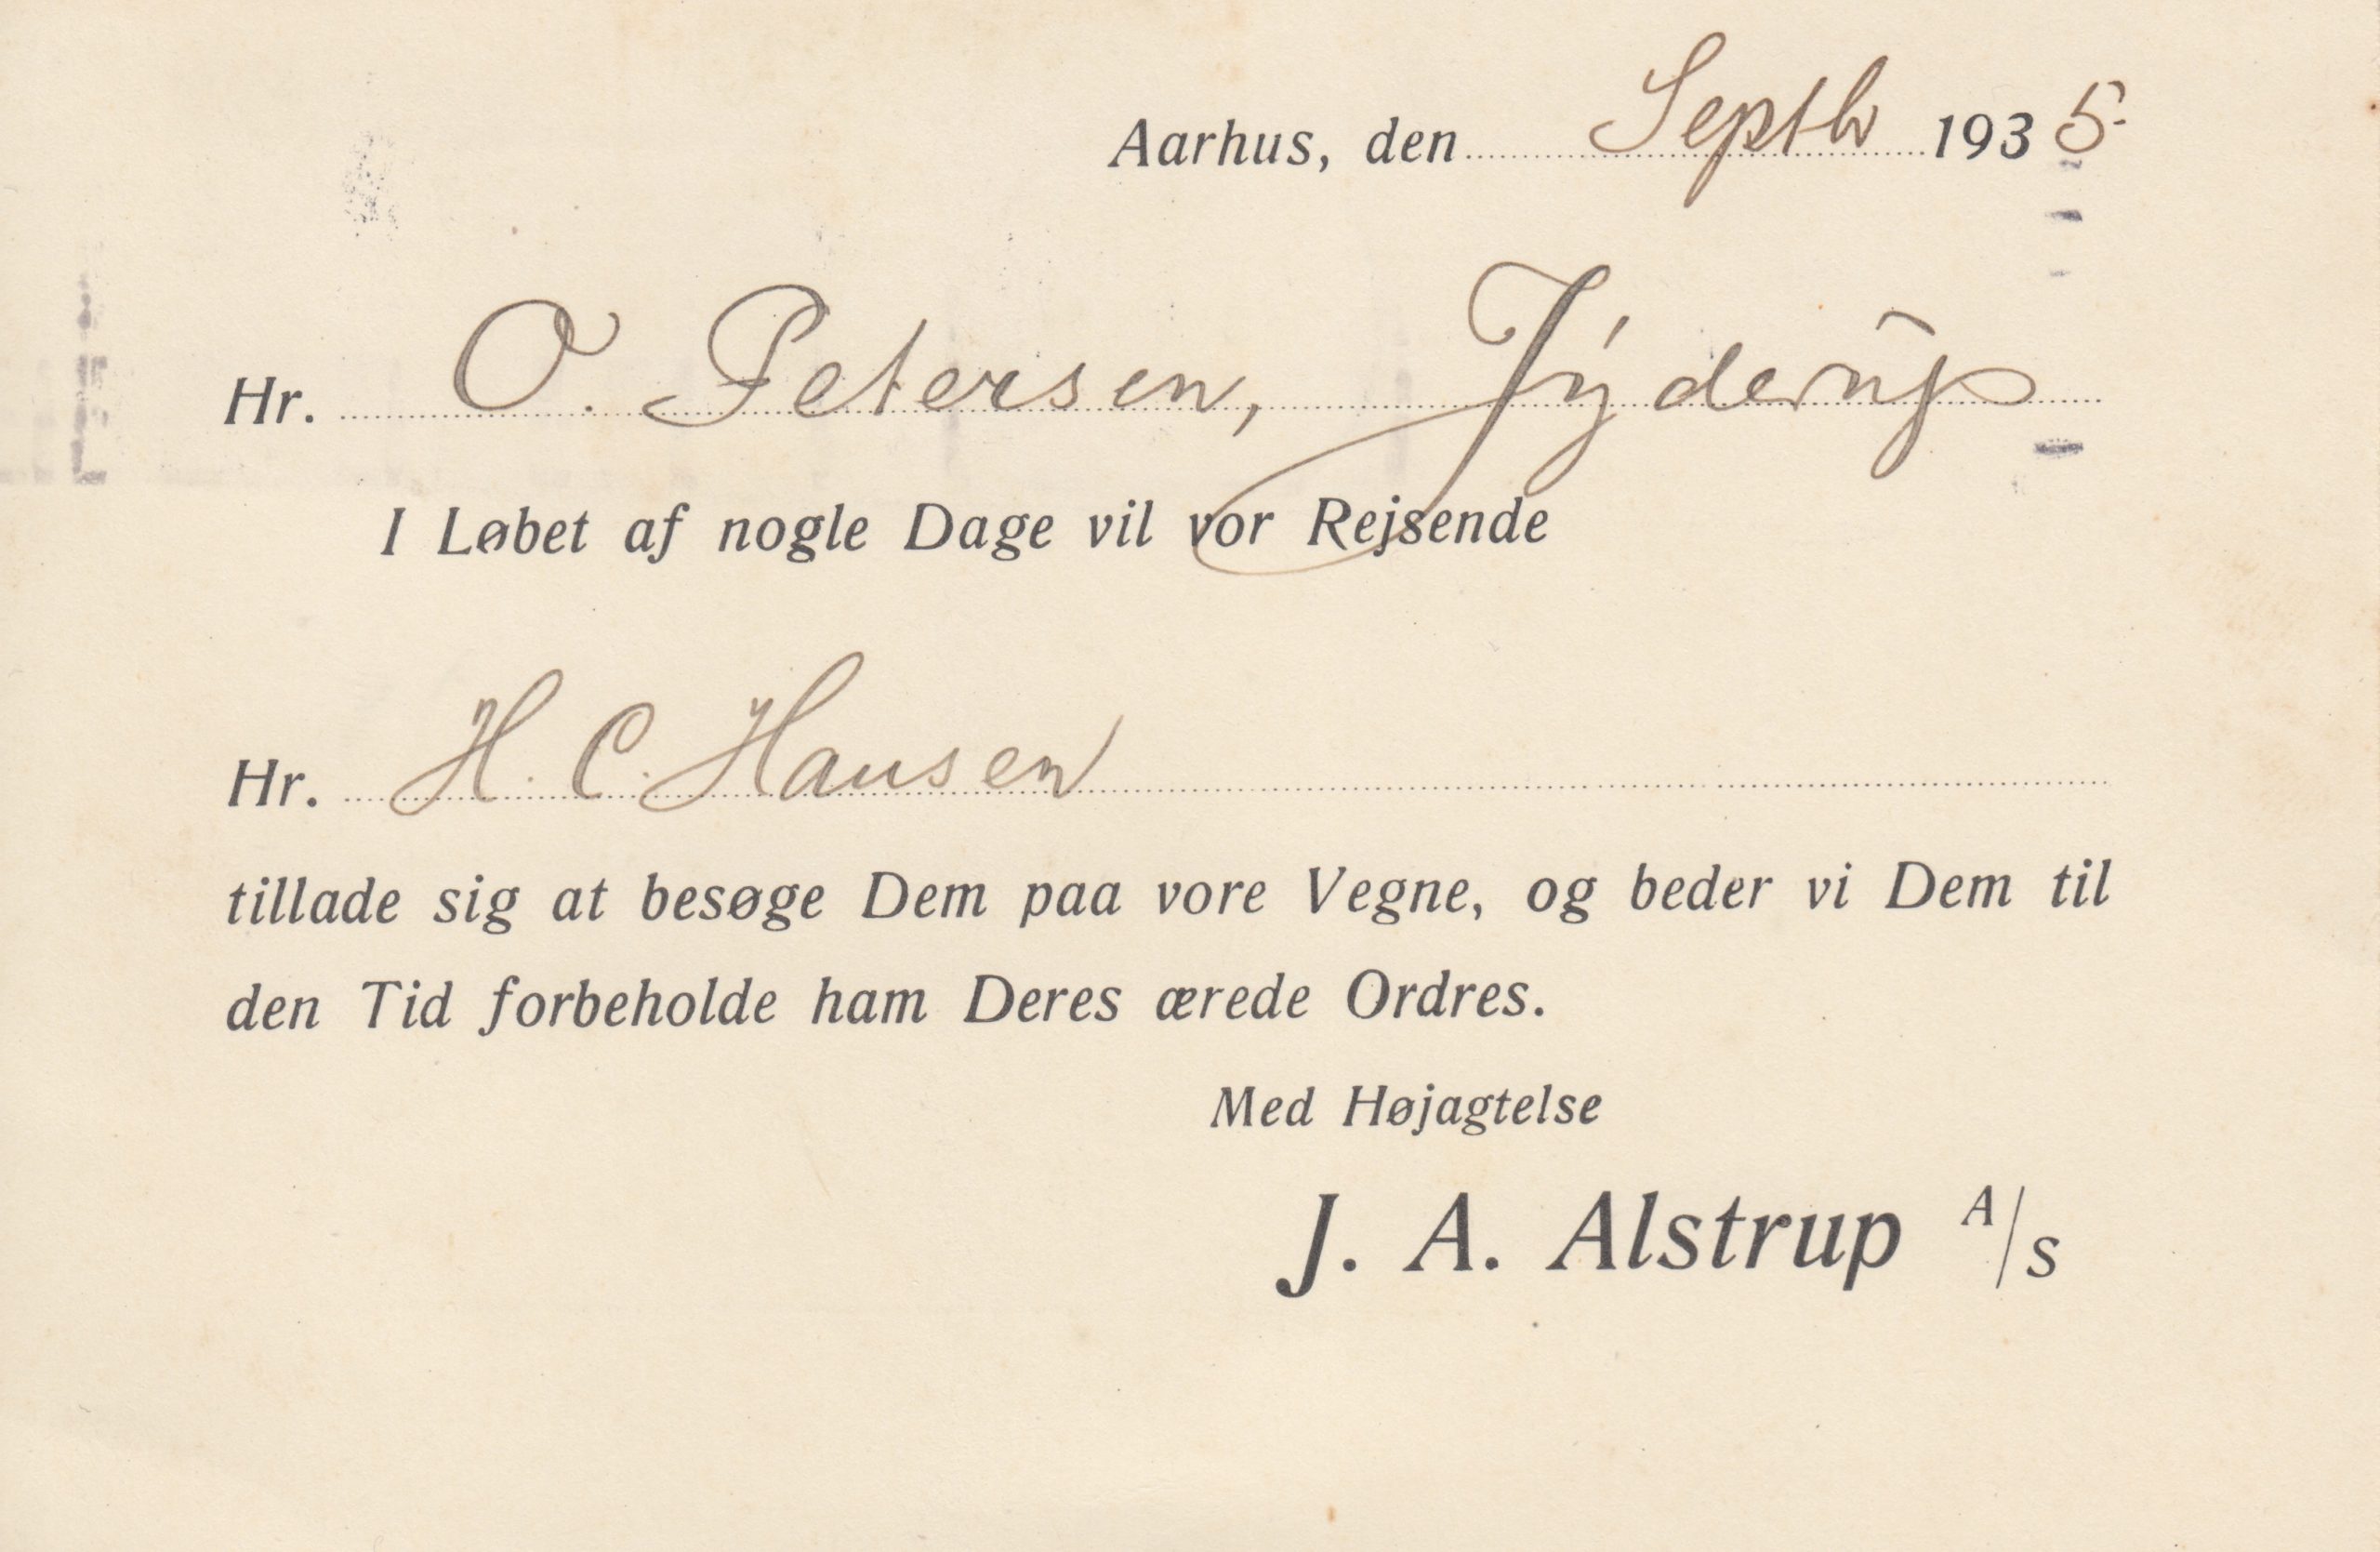 Aarhus, den Septb 1935
Hr. O. Petersen, Jyderup
I Løbet af nogle Dage vil vor Rejsende
Hr. H. C. Hansen
tillade sig at besøge Dem paa vore Vegne, og beder vi Dem til
den Tid forbeholde ham Deres ærede Ordres.
Med Højagtelse
J. A. Alstrup A/S